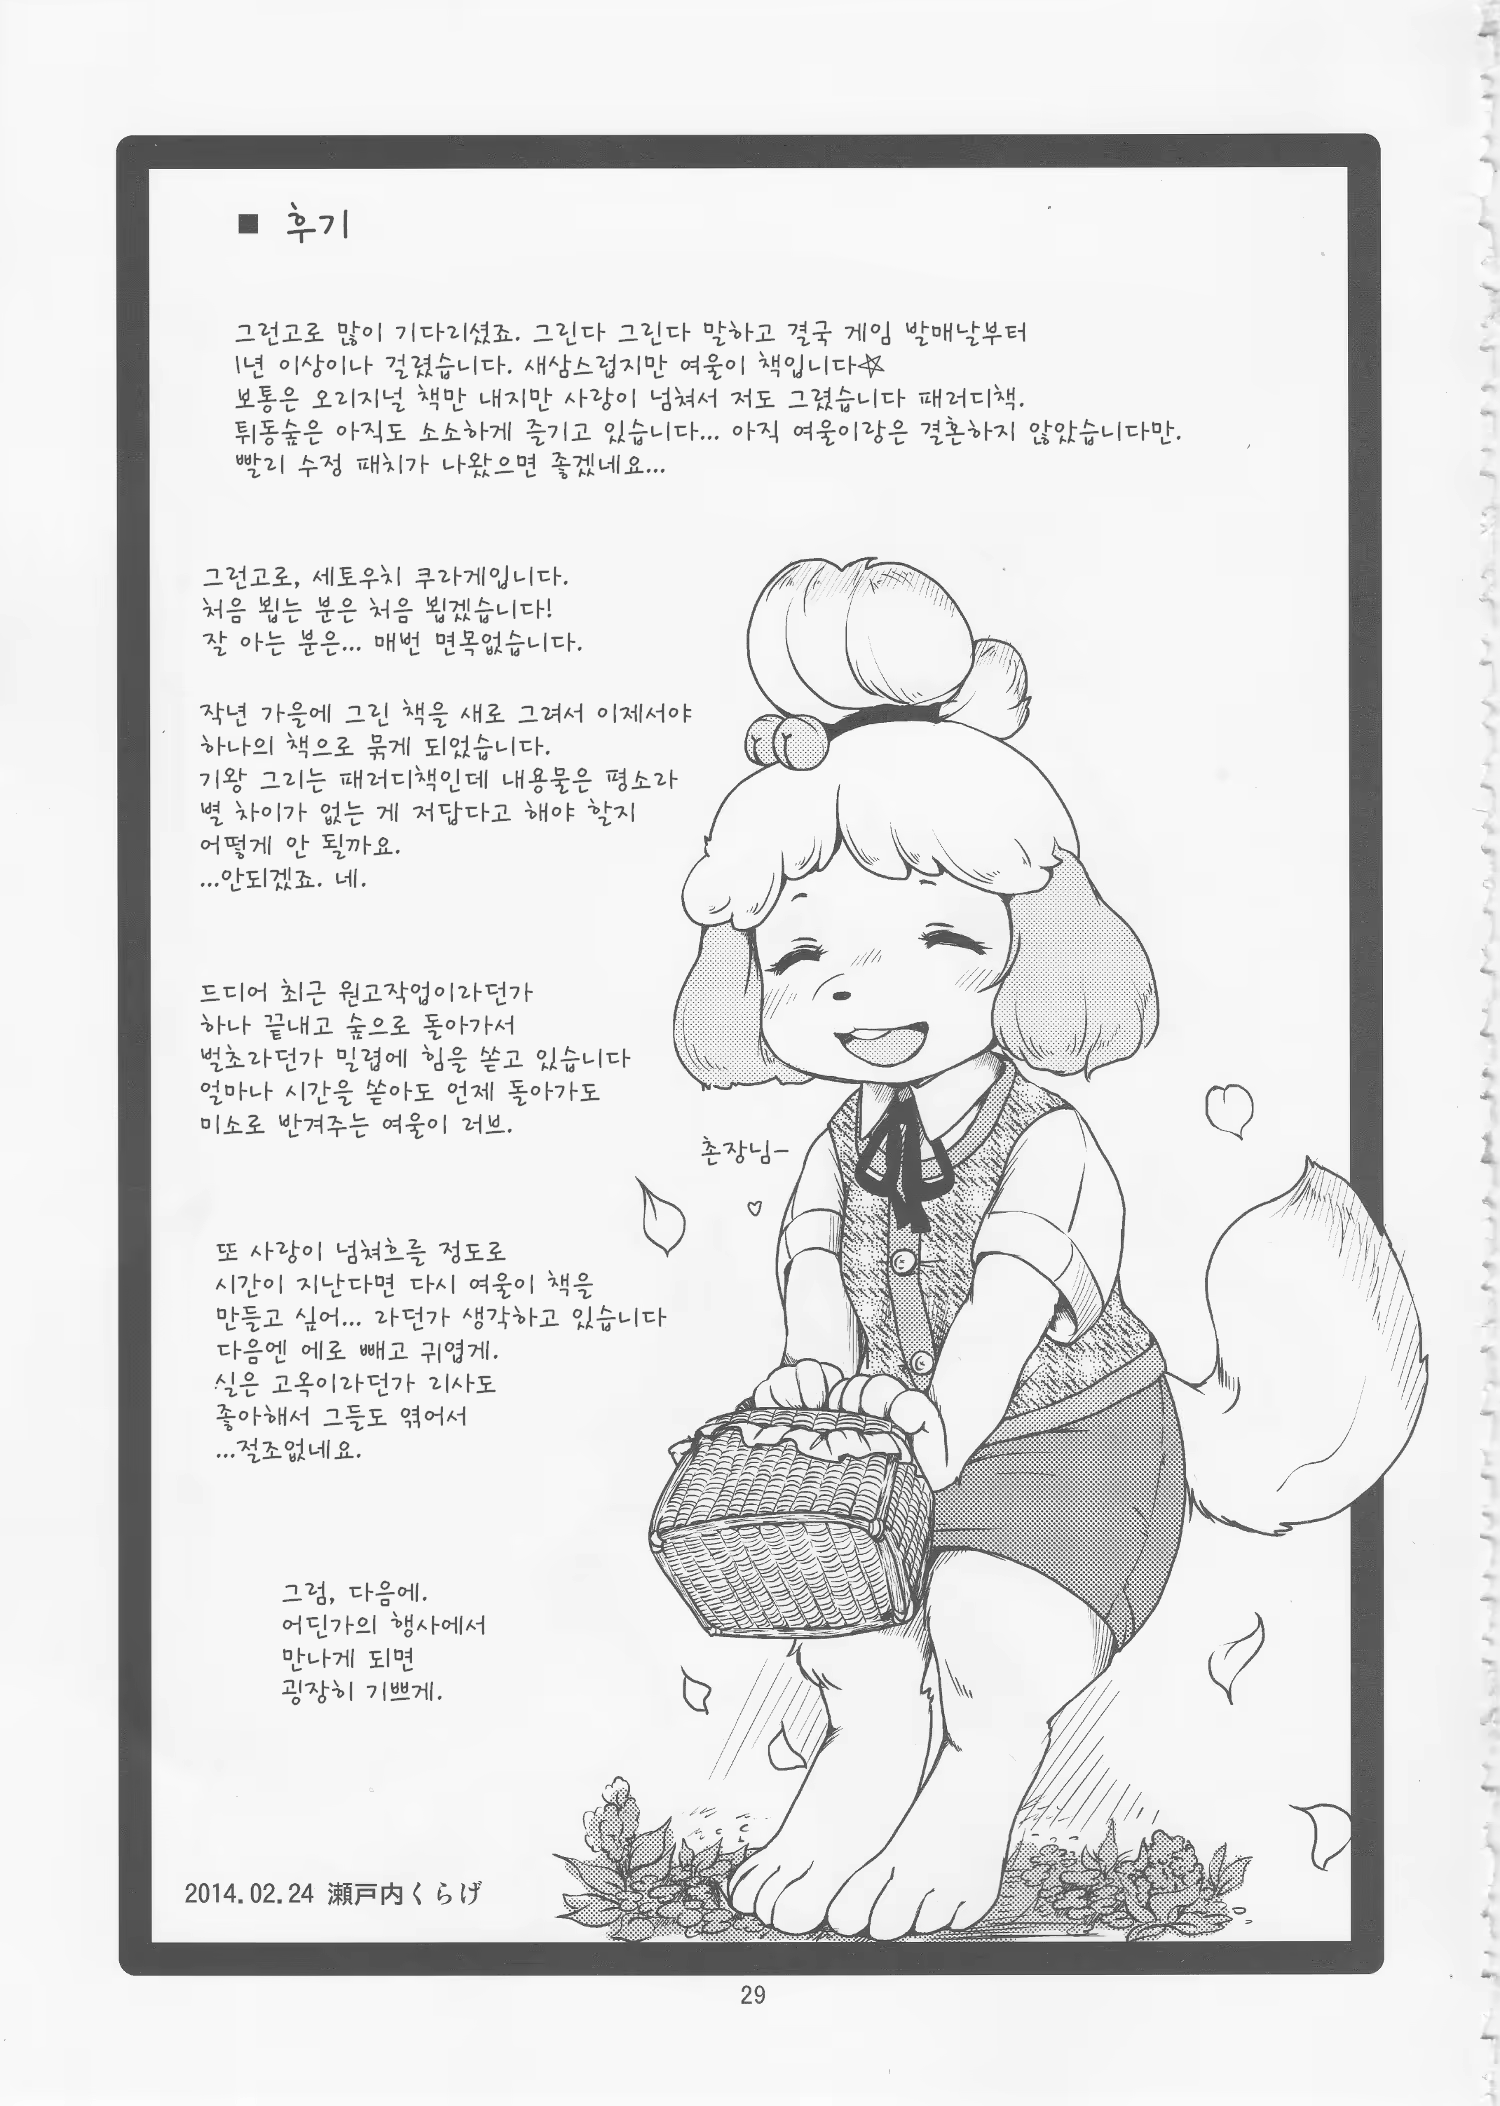 ■ 후기
그런고로 많이 기다리셨죠. 그린다 그린다 말하고 결국 게임 발매날부터
1년 이상이나 걸렸습니다. 새삼스럽지만 여울이 책입니다☆
보통은 오리지널 책만 내지만 사랑이 넘쳐서 저도 그렸습니다 패러디책.
튀동숲은 아직도 소소하게 즐기고 있습니다... 아직 여울이랑은 결혼하지 않았습니다만.
빨리 수정 패치가 나왔으면 좋겠네요...
그런고로, 세토우치 쿠라게입니다.
처음 뵙는 분은 처음 뵙겠습니다!
잘 아는 분은... 매번 면목없습니다.
작년 가을에 그린 책을 새로 그려서 이제서야
하나의 책으로 묶게 되었습니다.
기왕 그리는 패러디책인데 내용물은 평소라
별 차이가 없는 게 저답다고 해야 할지
어떻게 안 될까요.
...안되겠죠. 네.
드디어 최근 원고작업이라던가
하나 끝내고 숲으로 돌아가서
벌초라던가 밀렵에 힘을 쏟고 있습니다
얼마나 시간을 쏟아도 언제 돌아가도
미소로 반겨주는 여울이 러브.
촌장님-
♡
또 사랑이 넘쳐흐를 정도로
시간이 지난다면 다시 여울이 책을
만들고 싶어... 라던가 생각하고 있습니다
다음엔 에로 빼고 귀엽게.
실은 고옥이라던가 리사도
좋아해서 그들도 엮어서
...절조없네요.
그럼, 다음에.
어딘가의 행사에서
만나게 되면
굉장히 기쁘게.
2014.02.24 瀬戸内くらげ
29